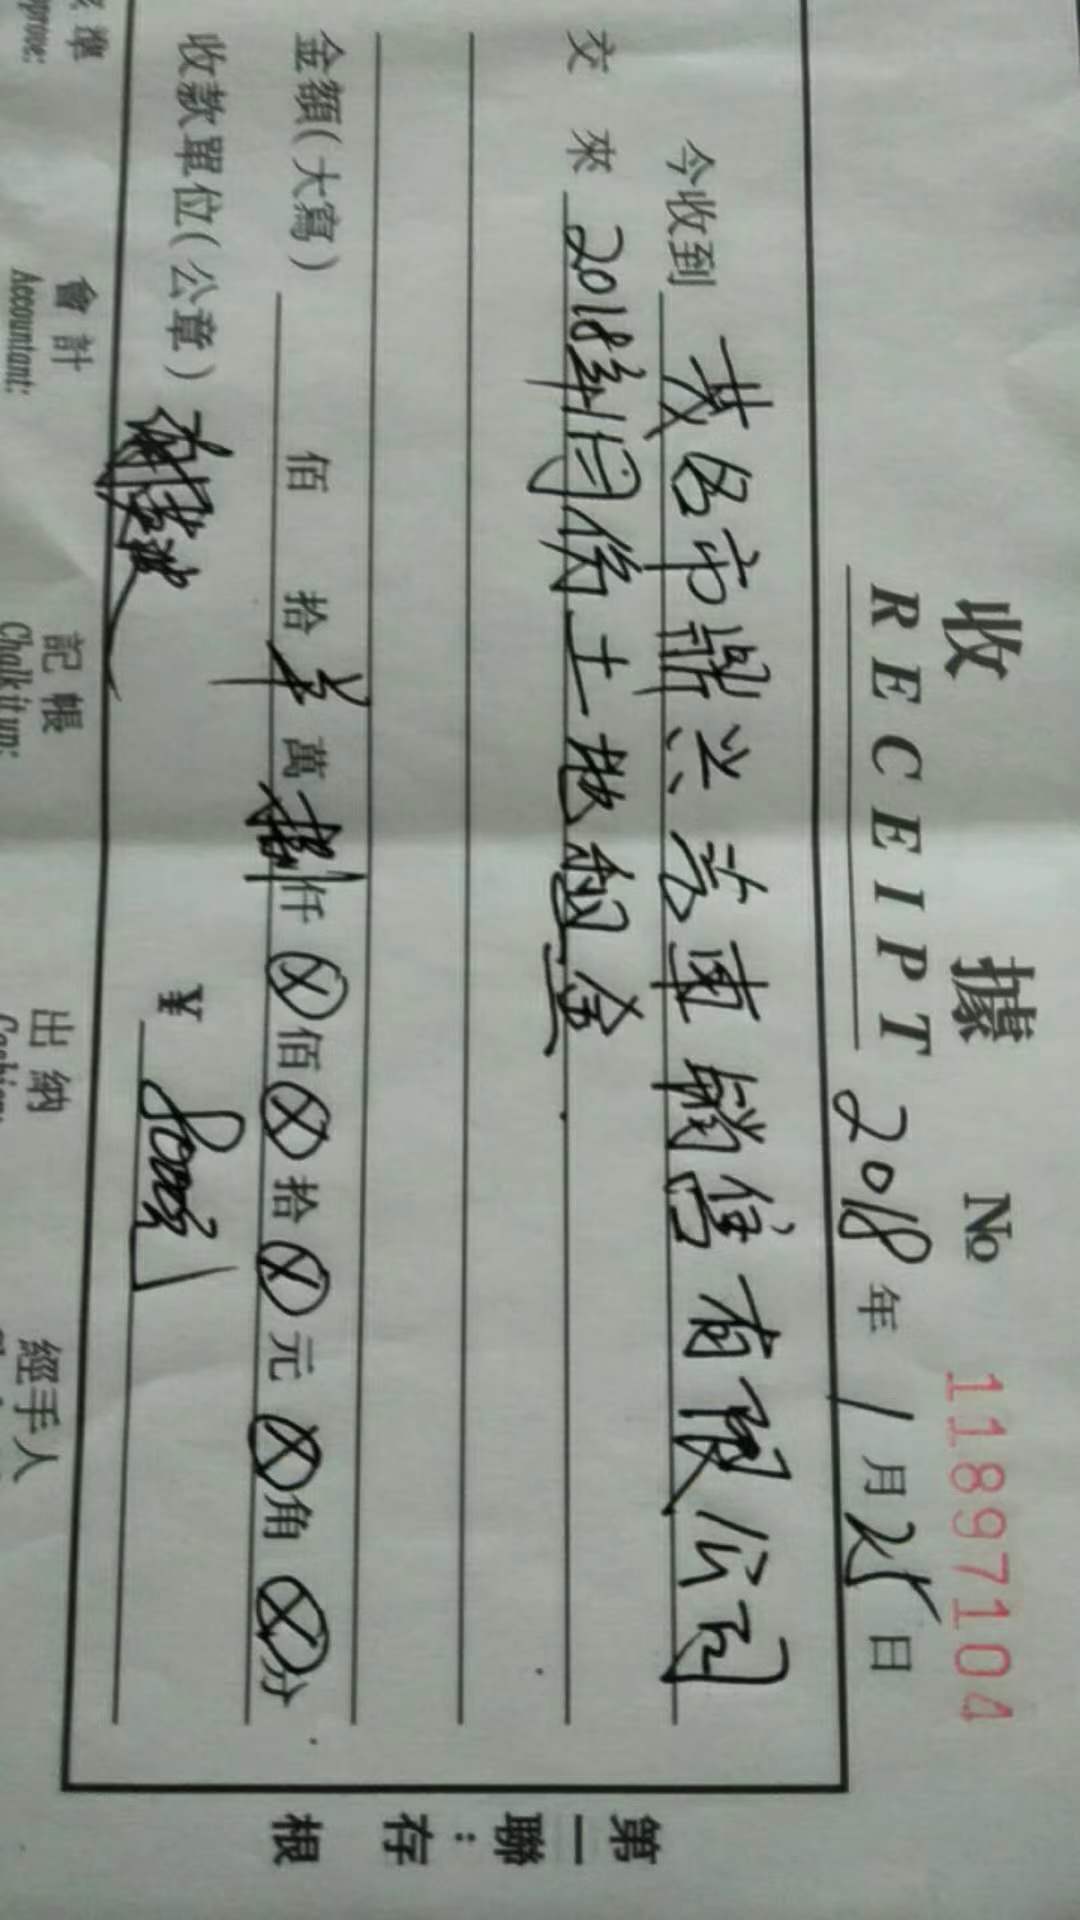 收 據 № 11897104
RECEIPT 2018年1月25日
今收到 茂名市鼎兴芸南销售有限公司
交來 2018年1月份土地租金
金額(大寫) 佰 拾 萬 捌仟⊗佰⊗拾⊗元⊗角⊗分
收款單位(公章) ¥
會計 記帳 出納 經手人
Accountant: Chalk it up:
第一聯:存根